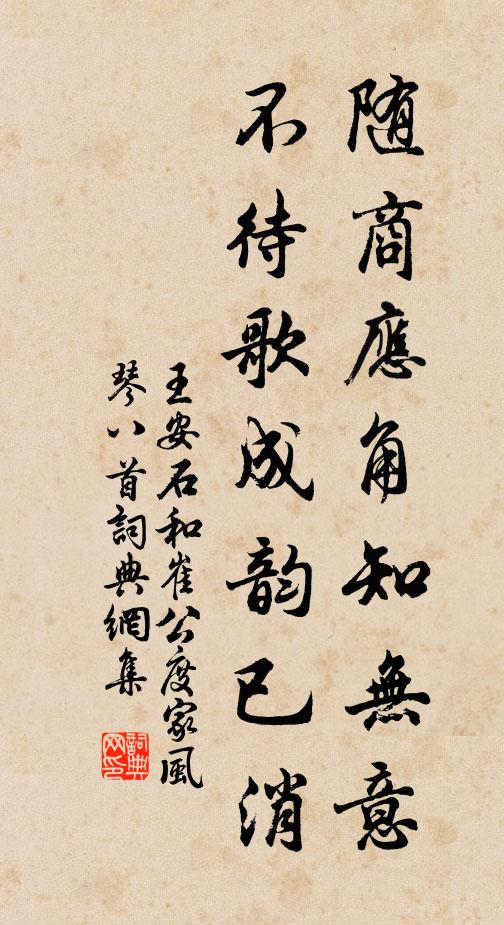 随商應角知無意
不待歌成韵已消
王安石和崔公度家風
琴八首詞典網集
詞典網印